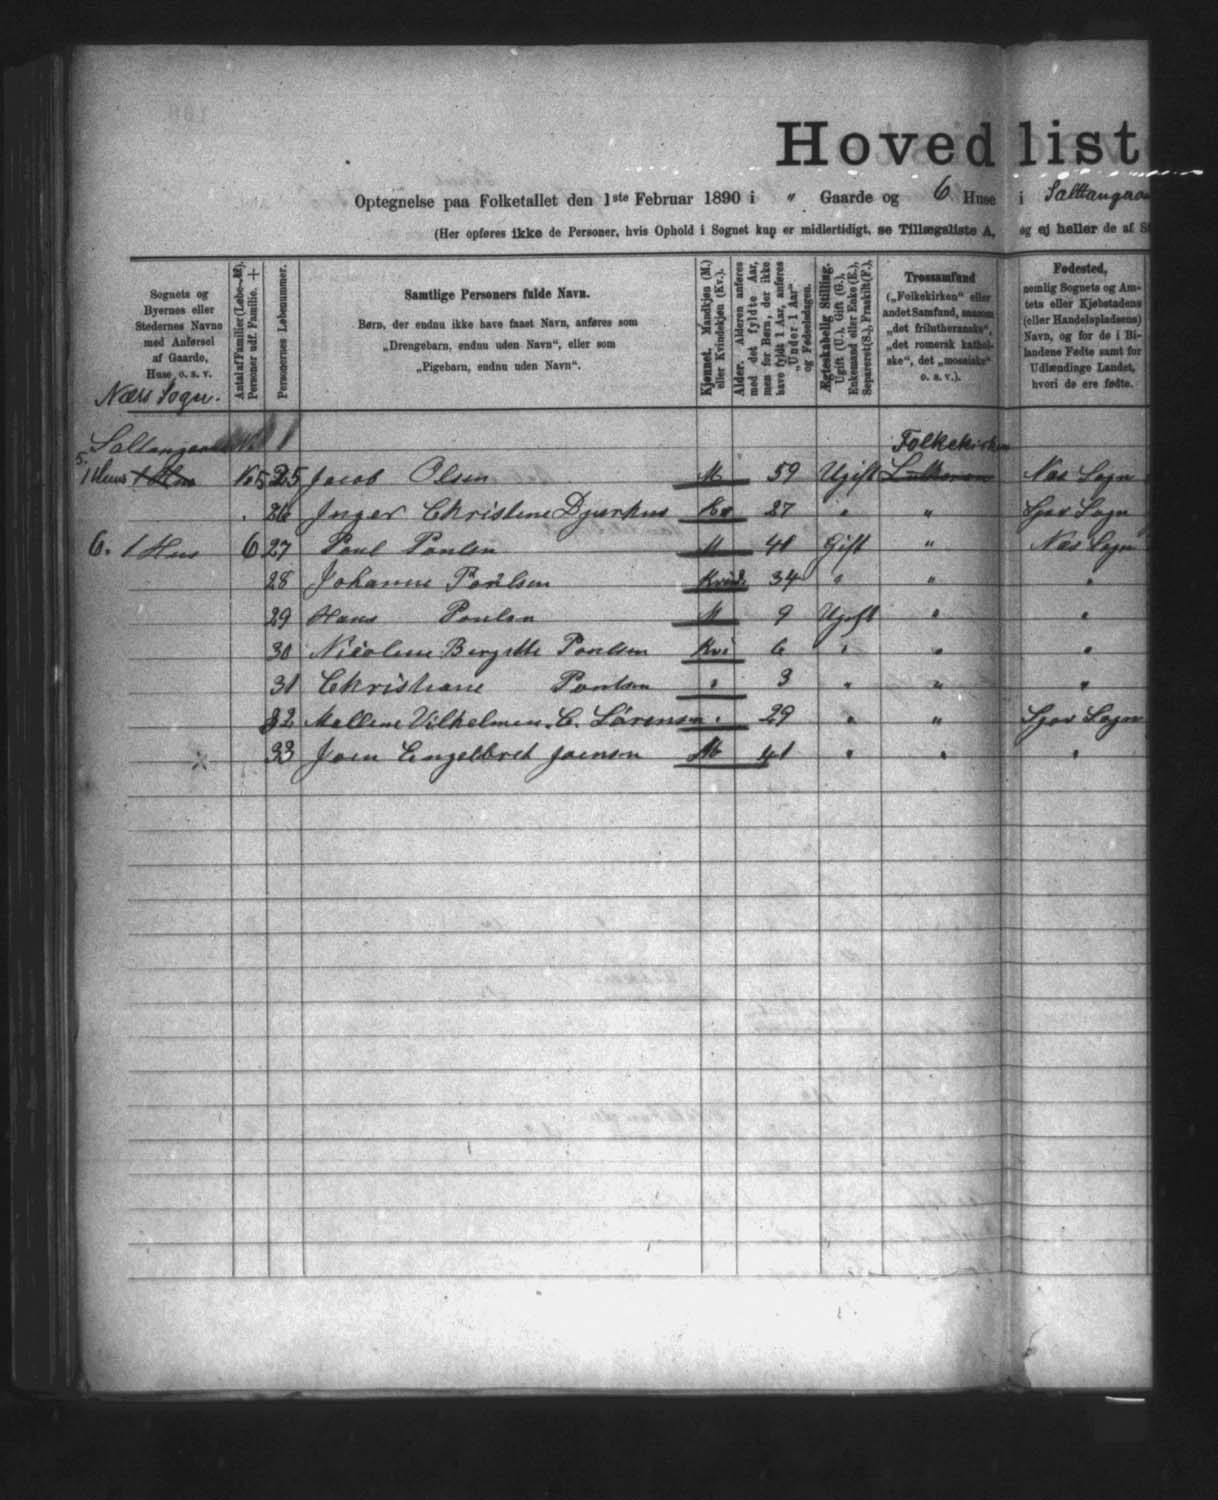 Hovedlist
Optegnelse paa Folketallet den 1ste Februar 1890 i " Gaarde og 6 Huse i Salttangaa
(Her opføres ikke de Personer, hvis Ophold i Sognet kun er midlertidigt, se Tillægsliste A, og ej heller de af S
Sognets og
Byernes eller
Stedernes Navne
med Anførsel
af Gaarde,
Huse, o. s. v.
Næs Sogn.
Antal af Familier (Løbe-№).
Personer udf. Familie. +
Personernes Løbenummer.
Samtlige Personers fulde Navn.
Børn, der endnu ikke have faaet Navn, anføres som
„Drengebarn, endnu uden Navn“, eller som
„Pigebarn, endnu uden Navn“.
Kjønnet. Mandkjøn (M.)
eller Kvindekjøn (Kv.).
Alder. Alderen anføres
med det fyldte Aar,
men for Børn, der ikke
have fyldt 1 Aar, anføres
„Under 1 Aar“
og Fødselsdagen.
Ægteskabelig Stilling.
Ugift (U.), Gift (G.),
Enkemand eller Enke (E.),
Separeret (S.), Fraskilt (F.).
Trossamfund
(„Folkekirken“ eller
andet Samfund, saasom
„det frilutheranske“,
„det romersk kathol-
ske“, det „mosaiske“
o. s. v.).
Fødested,
nemlig Sognets og Am-
tets eller Kjøbstadens
(eller Handelspladsens)
Navn, og for de i Bi-
landene Fødte samt for
Udlændinge Landet,
hvori de ere fødte.
Folkekirken
5. 1 Huus 25 Jacob Olsen M 59 Ugift Næs Sogn
26 Inger Christine Djurhus Kv 27 " " Sjov Sogn
6. 1 Hus 6 27 Poul Poulsen M 41 Gift " Næs Sogn
28 Johanne Poulsen Kvind. 34 " " "
29 Hans Poulsen M 9 Ugift " "
30 Nicoline Bergitte Poulsen Kvi 6 " " "
31 Christiane Poulsen " 3 " " "
32 Malline Vilhelmine C. Sørensen " 29 " " Sjov Sogn
33 Joen Engelbret Joensen M 41 " " "